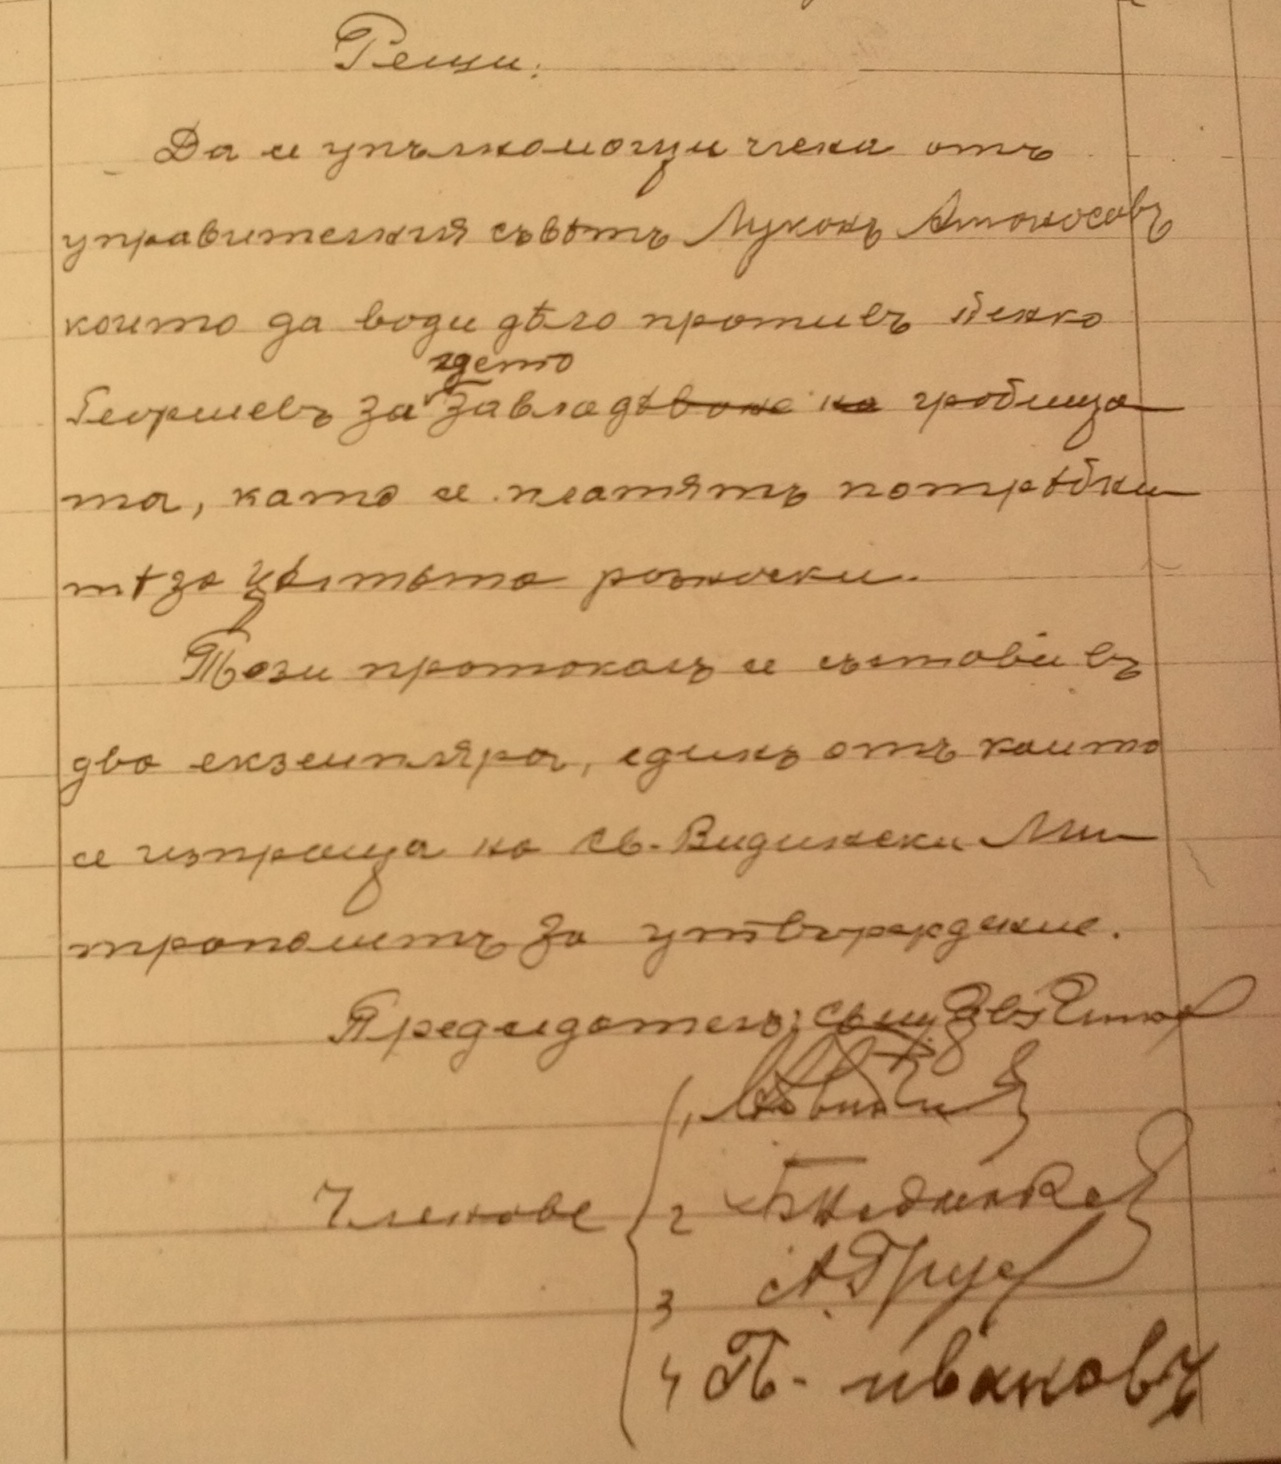 Реши:
Да се упълномощи члена отъ
управителния съвѣтъ Луканъ Атанасовъ
който да води дѣло противъ Пенко
гдето
Георгиевъ за завладѣване на гробища
та, като се платятъ потрѣбни
тѣ за цѣльта разноски.
Този протоколъ се състави въ
два екземпляра, единъ отъ които
се изпраща на Св. Видински Ми
трополитъ за утвърждение.
Председатель: свещ.
1,
Членове 2
3
4 П. Ивановъ